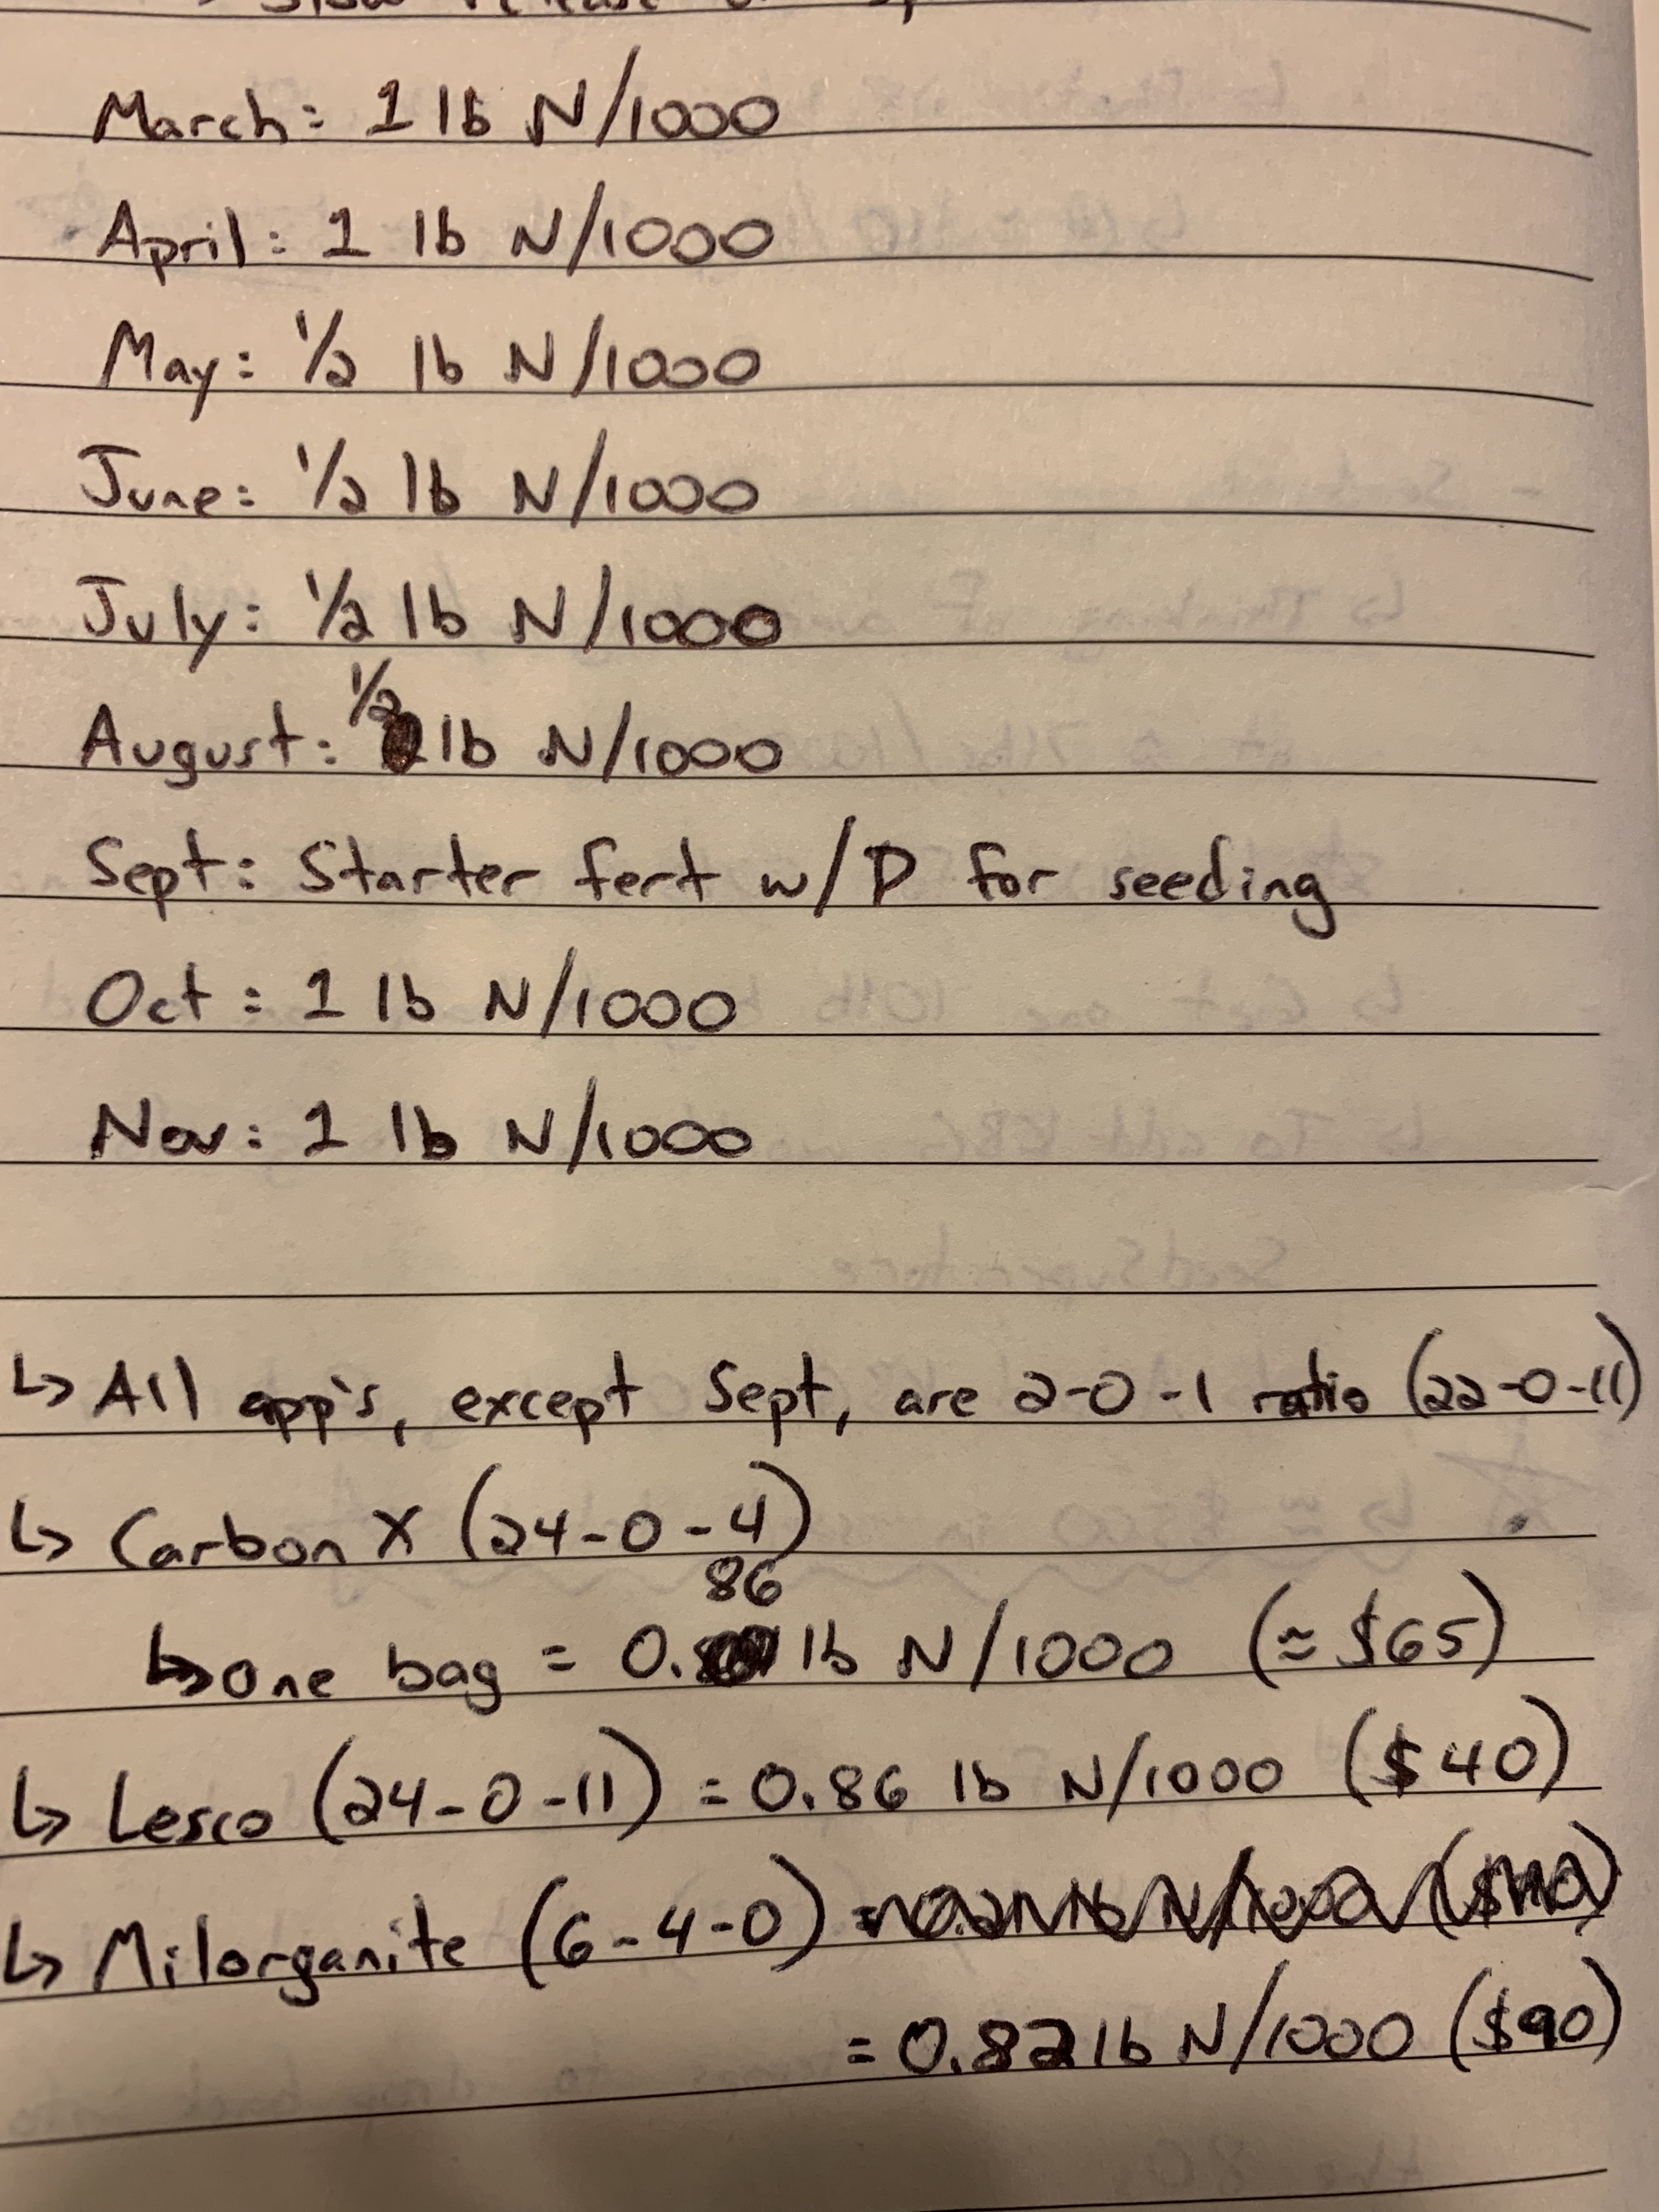 March: 1 lb N/1000
April: 1 lb N/1000
May: 1/2 lb N/1000
June: 1/2 lb N/1000
July: 1/2 lb N/1000
August: 1/2 lb N/1000
Sept: Starter fert w/P for seeding
Oct: 1 lb N/1000
Nov: 1 lb N/1000
↳ All app's, except Sept, are 2-0-1 ratio (22-0-11)
↳ Carbon X (24-0-4)
↳ one bag = 0.86 lb N/1000 (≈ $65)
↳ Lesco (24-0-11) = 0.86 lb N/1000 ($40)
↳ Milorganite (6-4-0)
= 0.82 lb N/1000 ($90)